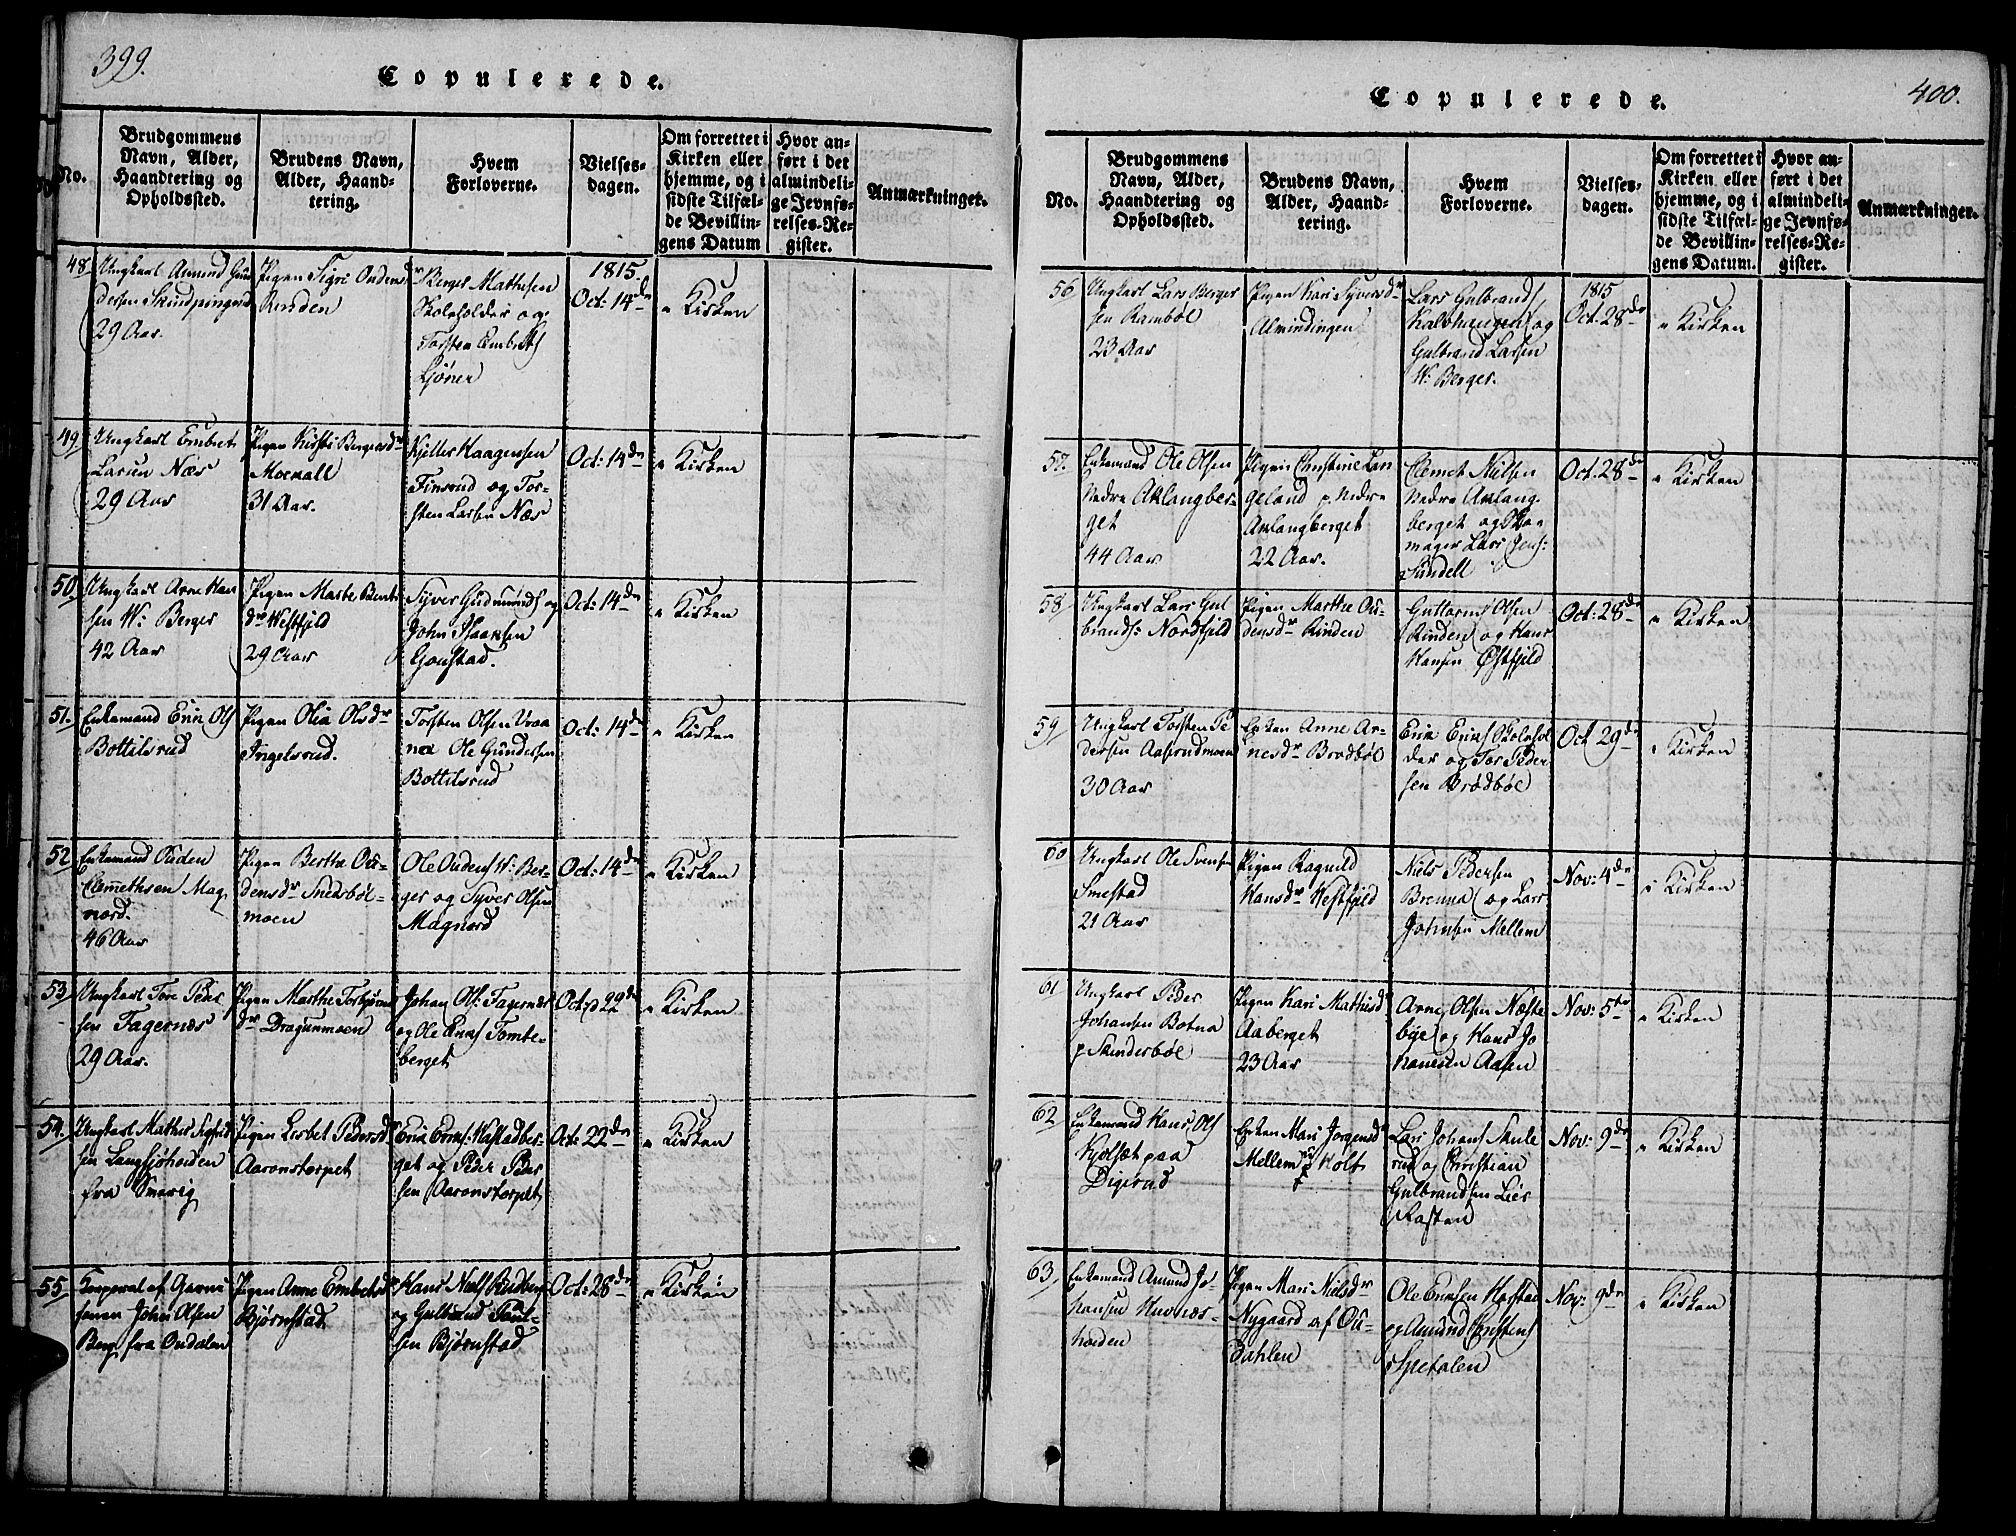 399.
Copulerede.
No.
Brudgommens Navn, Alder, Haandtering og Opholdssted.
Brudens Navn, Alder, Haandtering.
Hvem Forloverne.
Vielsesdagen.
Om forrettet i Kirken eller hjemme, og i sidste Tilfælde Bevillingens Datum
Hvor anført i det almindelige Jevnførelses-Register.
Anmærkninger.
48
Ungkarl Amund
29 Aar.
Pigen Sigri Oudensdr
Rinden
Berger Mathisen
Skoleholder og
Torsten Embrets
Ljöner
1815.
Oct: 14de
i Kirken
49
Ungkarl Embret
Larsen Næs
29 Aar
Pigen Kirsti Bergersdr
31 Aar.
Kjilter Haagensen
Finsrud og Tor-
sten Larsen Næs
Oct: 14de
i Kirken
50
Ungkarl Arne Han
sen W: Berger
42 Aar
Pigen Marte Bernts
dr Westfjeld
29 Aar
Syver Gudmunds og
John Isaksen
Gonstad.
Oct: 14de
i Kirken
51.
Enkemand Eric Ols
Bottilsrud
Pigen Olia Olsdr
Ingelsrud.
Torsten Olsen Vraa
Ole Gundersen
Bottilsrud
Oct: 14de
i Kirken
52
Enkemand Ouden
Clemethsen Mag
nord.
46 Aar
Pigen Berthe Ou-
densdr Snersböl-
moen
Ole Oudens W: Ber-
ger og Syver Olsen
Magnord
Oct: 14de
i Kirken
53
Ungkarl Tore Peder
sen Fagernæs
29 Aar.
Pigen Marthe Torbjörns
dr Dragunmoen
Johan Ols: Fagernæs
og Ole Knuds Tomte-
berget
Oct: 22de
i Kirken
54.
Ungkarl Mathis Sigfrid
sen
fra
Pigen Lisbet Pedersdr
Aaronstorpet
get og Peder Peder
sen Aaronstorpet
Oct: 22de
i Kirken
55
Korporal af Garni
sonen John Olsen
Berg fra Oudalen
Pigen Anne Embretsdr
Björnstad
Hans Niels
og Gulbrand Poul-
sen Björnstad
Oct: 28de
i Kirken
400.
Copulerede.
No.
Brudgommens Navn, Alder, Haandtering og Opholdssted.
Brudens Navn, Alder, Haandtering.
Hvem Forloverne.
Vielsesdagen.
Om forrettet i Kirken eller hjemme, og i sidste Tilfælde Bevillingens Datum.
Hvor anført i det almindelige Jevnførelses-Register.
Anmærkninger.
56
Ungkarl Lars Berger
sen Ramböl
23 Aar
Pigen Kari Syversdr
Almindingen
Lars Gulbrands
Kalvhaugen og
Gulbrand Larsen
W: Berger.
1815
Oct: 28de
i Kirken
57.
Enkemand Ole Olsen
Nedre Aklangber
get
44 Aar
Pigen Christine Lan
geland p. Nedre
Aklangberget
22 Aar.
Clemet Nilsen
Nedre Aklang
berget og Sko
mager Lars Jens:
Sundell
Oct: 28de
i Kirken
58
Ungkarl Lars Gul
brands: Nordfjeld
Pigen Marthe Ou
densdr Rinden
Guttorm Olsen
Rinden og Hans
Hansen Östfjeld
Oct: 28de
i Kirken
59
Ungkarl Torsten Pe
dersen Aaserudmoen
30 Aar
Enken Anne Ar-
nesdr Brodböl
Eric Erics Skolehol
der og Tor Peder
sen Brödböl
Oct 29de
i Kirken
60
Ungkarl Ole Svensen
Smestad
21 Aar
Pigen Ragnild
Hansdr Westfjeld
Niels Pedersen
Brenna og Lars
Johnsen Mellem
Nov: 4de
i Kirken
61
Ungkarl Peder
Johansen Botna
p Skinderböl
Pigen Kari Mathisdr
Aaberget
23 Aar
Arne Olsen Næste
bye og Hans Jo
hannesen Aasen
Nov: 5te
i Kirken
62
Enkemand Hans Ols
Kjölset paa
Digerud
Enken Mari Jorgensdr
Mellem p Holt
Lars Johans Skule
rud og Christian
Gulbrandsen Lier
Nov: 9de
i Kirken
63
Enkemand Amund Jo-
hansen
Pigen Mari Nielsdr
Nygaard af Ou-
Dahlen
Ole Ericksen Hastad
og Amund Christens
Spetalen
Nov: 9de
i Kirken